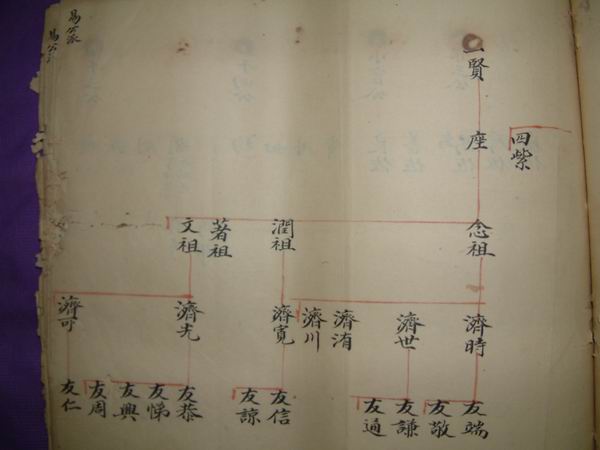 四紫
一賢
座
念祖 潤祖 著祖 文祖
濟時 濟世 濟洧 濟川 濟寬 濟光 濟可
友端 友敬 友謙 友通 友信 友諒 友恭 友悌 友興 友周 友仁
易公派